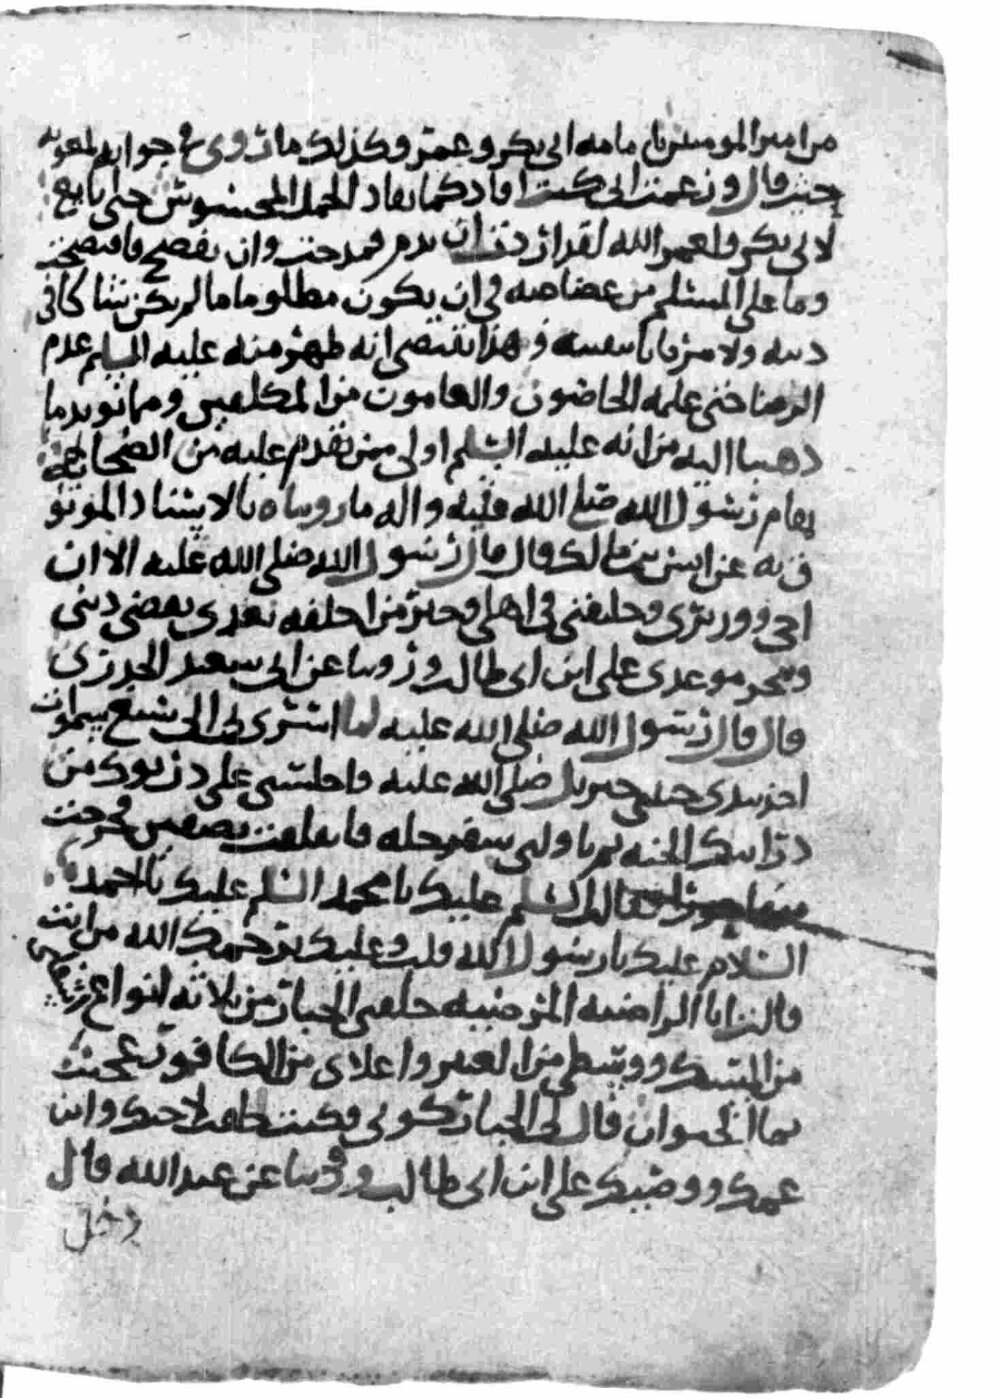 من امير المومنين بامامه ابي بكر وعمر وكذلك ما روي في جوابه لمعويه
حيث قال وزعمت اني كنت اقاد كما يقاد الجمل المخشوش حتى ابايع
لابي بكر ولعمر الله لقد اردت ان تذم فمدحت وان تفضح فافتضحت
وما على المسلم من غضاضه في ان يكون مظلوما ما لم يكن شاكا في
دينه ولا مرتابا بيقينه وهذا يقتضي انه ظهر منه عليه السلم عدم
الرضا حتى علمه الخاصون والعامون من المكلفين ومما يويد ما
ذهبنا اليه من انه عليه السلم اولى ممن تقدم عليه من الصحابه
بمقام رسول الله صلى الله عليه واله ما رويناه بالاسناد الموثو
ق به عن انس بن مالك قال قال رسول الله صلى الله عليه الا ان
اخي ووزيري وخليفتي في اهلي وخير من اخلفه بعدي يقضي ديني
وينجز موعدي علي ابن ابي طالب وروينا عن ابي سعيد الخدري
قال قال رسول الله صلى الله عليه لما اسري بي الى سبع سموات
اخذ بيدي حبيبي جبريل صلى الله عليه واجلسني على درنوك من
درانيك الجنه ثم ناولني سفرجله فانفلقت نصفين فخرجت
منها حورا فقالت السلم عليك يا محمد السلم عليك يا احمد
السلام عليك يا رسول الله قلت وعليك يرحمك الله من انت
قالت انا الراضيه المرضيه خلقني الجبار من ثلاثه انواع
من المسك ووسطي من العنبر واعلاي من الكافور عجنت
بما الحيوان قال لي الجبار كوني فكنت خلقت لاخيك وابن
عمك ووصيك علي ابن ابي طالب وروينا عن عبد الله قال
دخل